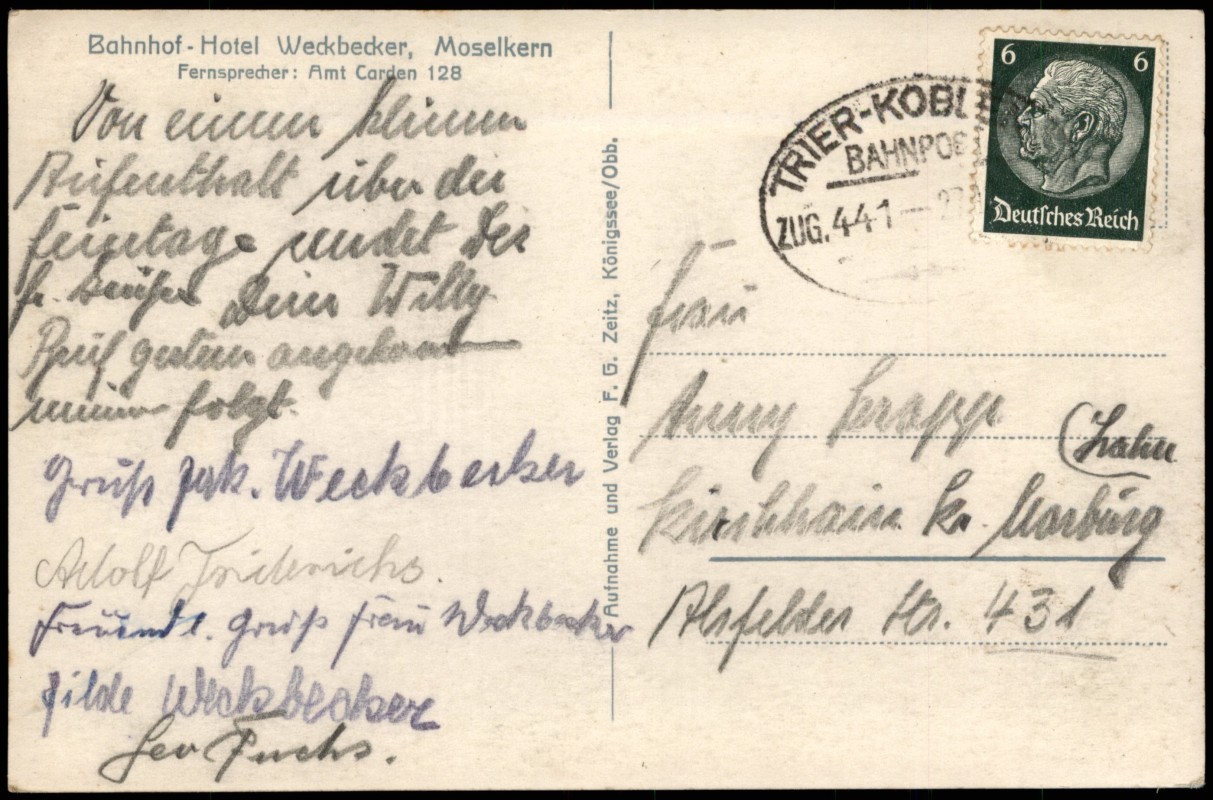 Bahnhof-Hotel Weckbecker, Moselkern
Fernsprecher: Amt Carden 128
Von einem kleinen
Aufenthalt über die
Feiertage sendet Dir
Dein Willy
Brief gestern angekom-
men folgt.
Gruß Jak. Weckbecker
Adolf Friderichs.
Freundl. Gruß Frau Weckbecker
Hilde Weckbecker
Geo Fuchs.
Aufnahme und Verlag F. G. Zeitz, Königssee/Obb.
TRIER-KOBLE
BAHNPOS
ZUG. 441 — 27
6 6
Deutsches Reich
Frau
Anny
(Lahn
Kirchhain Kr. Marburg
Alsfelder Str. 431